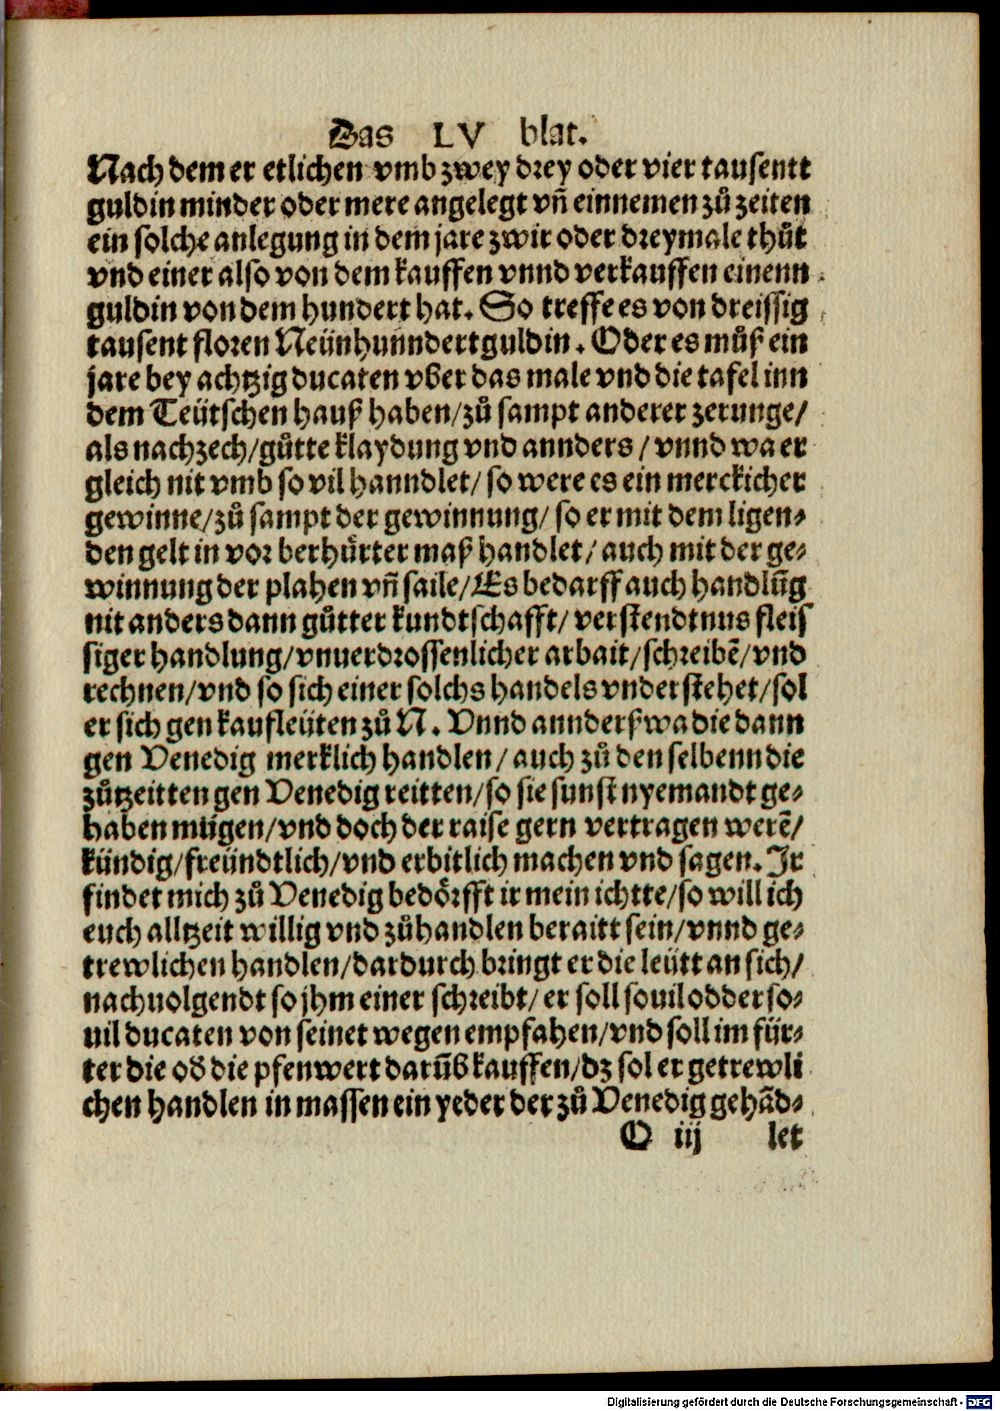 Das LV blat.
Nach dem er etlichen vmb zwey drey oder vier tausentt
guldin minder oder mere angelegt vñ einnemen zů zeiten
ein solche anlegung in dem jare zwir oder dreymale thůt
vnd einer also von dem kauffen vnnd verkauffen einenn
guldin von dem hundert hat. So treffe es von dreissig
tausent floren Neünhunndert guldin. Oder es můß ein
jare bey achtzig ducaten vber das male vnd die tafel inn
dem Teütschen hauß haben/zů sampt anderer zerunge/
als nachzech/gůtte klaydung vnd annders/vnnd wa er
gleich nit vmb so vil hanndlet/so were es ein merckicher
gewinne/zů sampt der gewinnung/so er mit dem ligen⸗
den gelt in vor berhürter maß handlet/auch mit der ge⸗
winnung der plahen vñ saile/Es bedarff auch handlũg
nit anders dann gůtter kundtschafft/verstendtnus fleis
siger handlung/vnuerdrossenlicher arbait/schreibẽ/vnd
rechnen/vnd so sich einer solchs handels vnderstehet/sol
er sich gen kaufleüten zů N. Vnnd annderßwa die dann
gen Venedig merklich handlen/auch zů den selbenn die
zůtzeitten gen Venedig reitten/so sie sunst nyemandt ge⸗
haben mügen/vnd doch der raise gern vertragen werẽ/
kündig/freündtlich/vnd erbitlich machen vnd sagen. Jr
findet mich zů Venedig bedörfft ir mein ichtte/so will ich
euch alltzeit willig vnd zůhandlen beraitt sein/vnnd ge⸗
trewlichen handlen/dardurch bringt er die leütt an sich/
nachuolgendt so jhm einer schreibt/er soll souil odder so⸗
uil ducaten von seinet wegen empfahen/vnd soll im für⸗
ter die oď die pfenwert darũb kauffen/dz sol er getrewli
chen handlen in massen ein yeder der zů Venedig gehãd⸗
O iij let
Digitalisierung gefördert durch die Deutsche Forschungsgemeinschaft - DFG